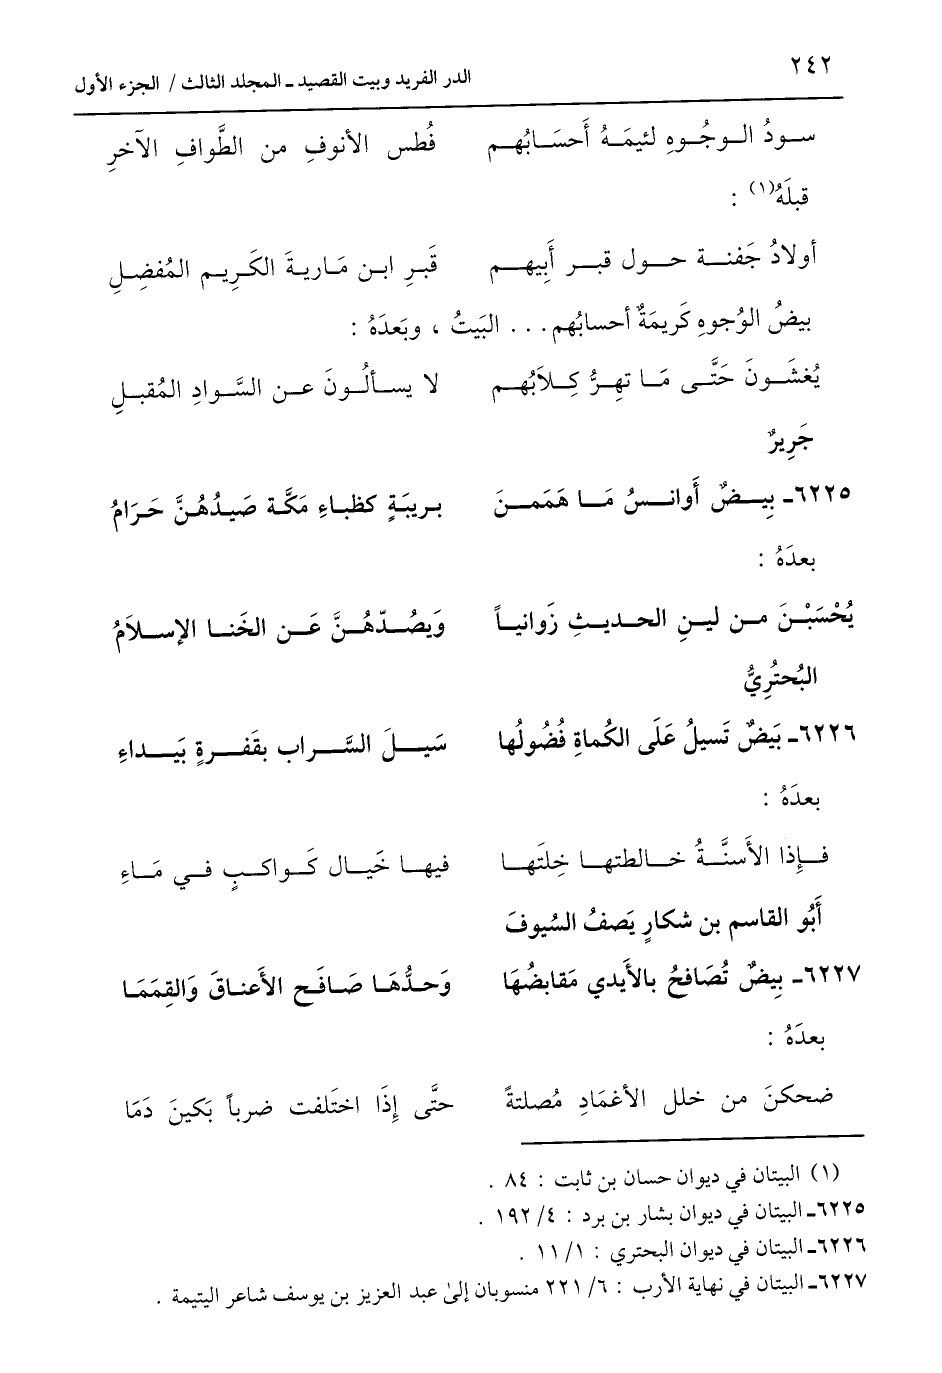 ٢٤٢ الدر الفريد وبيت القصيد ـ المجلد الثالث / الجزء الأول
سودُ الوجُوهِ لئيمَةُ أَحسَابُهم فُطس الأنوفِ من الطَّوافِ الآخرِ
قبلَهُ(١) :
أولادُ جَفنة حول قبر أَبِيهم قَبرِ ابن مَاريةَ الكَرِيم المُفضِلِ
بيضُ الوُجوهِ كَريمَةٌ أحسابُهم . . . البَيتُ ، وبَعدَهُ :
يُغشَونَ حَتَّى مَا تهِرُّ كِلاَبُهم لا يسألُونَ عن السَّوادِ المُقبلِ
جَرِيرٌ
٦٢٢٥ـ بِيضٌ أَوانسُ مَا هَمَمنَ بريبَةٍ كظباءِ مَكَّة صَيدُهُنَّ حَرَامُ
بعدَهُ :
يُحْسَبْنَ من لينِ الحديثِ زَوانياً وَيصُدّهُنَّ عَن الخَنا الإسلاَمُ
البُحتُرِيُّ
٦٢٢٦ـ بَيضٌ تَسيلُ عَلَى الكُماةِ فُضُولُها سَيلَ السَّراب بقَفرةٍ بَيداءِ
بعدَهُ :
فإذا الأَسنَّةُ خالطتها خِلتَها فيها خَيال كَواكبٍ في مَاءِ
أَبُو القاسم بن شكارٍ يَصفُ السُيوفَ
٦٢٢٧ـ بِيضٌ تُصَافحُ بالأَيدي مَقابضُهَا وَحدُّهَا صَافَح الأَعناقَ وَالقِمَمَا
بعدَهُ :
ضحكنَ من خلل الأغمَادِ مُصلتةً حتَّى إِذَا اختَلفت ضرباً بَكينَ دَمَا
(١) البيتان في ديوان حسان بن ثابت : ٨٤ .
٦٢٢٥ـ البيتان في ديوان بشار بن برد : ٤/ ١٩٢ .
٦٢٢٦ـ البيتان في ديوان البحتري : ١/ ١١ .
٦٢٢٧ـ البيتان في نهاية الأرب : ٦/ ٢٢١ منسوبان إلىٰ عبد العزيز بن يوسف شاعر اليتيمة .